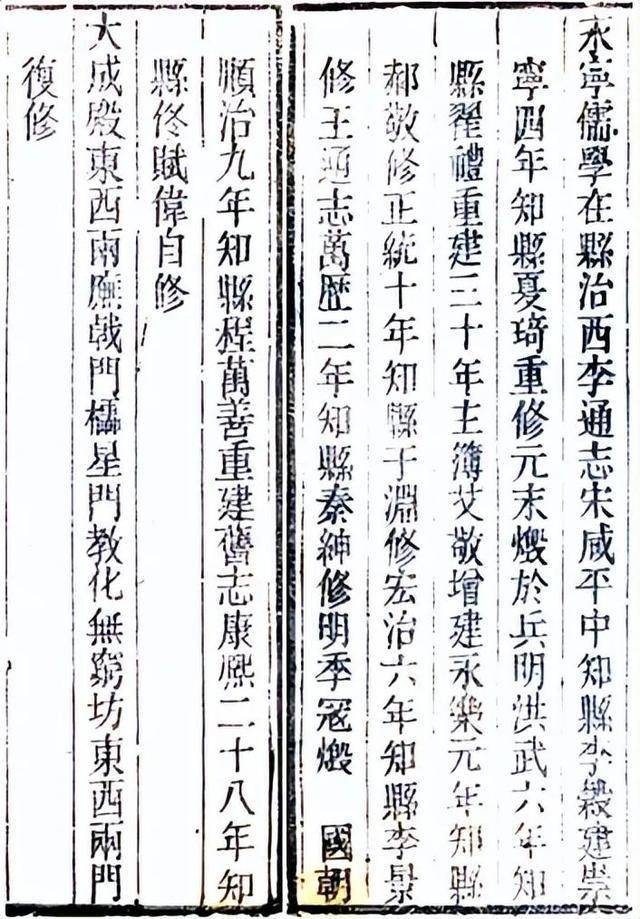 永寧儒學在縣治西李通志宋咸平中知縣李毅建崇
寧四年知縣夏琦重修元末燬於兵明洪武六年知
縣翟禮重建三十年主簿艾敬增建永樂元年知縣
郝敬修正統十年知縣于淵修宏治六年知縣李景
修王通志萬歷二年知縣秦紳修明季冦燬 國朝
順治九年知縣程萬善重建舊志康熙二十八年知
縣佟賦偉自修
大成殿東西兩廡戟門櫺星門教化無窮坊東西兩門
復修